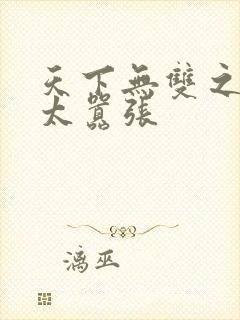 天下無雙之
太囂張
漓巫